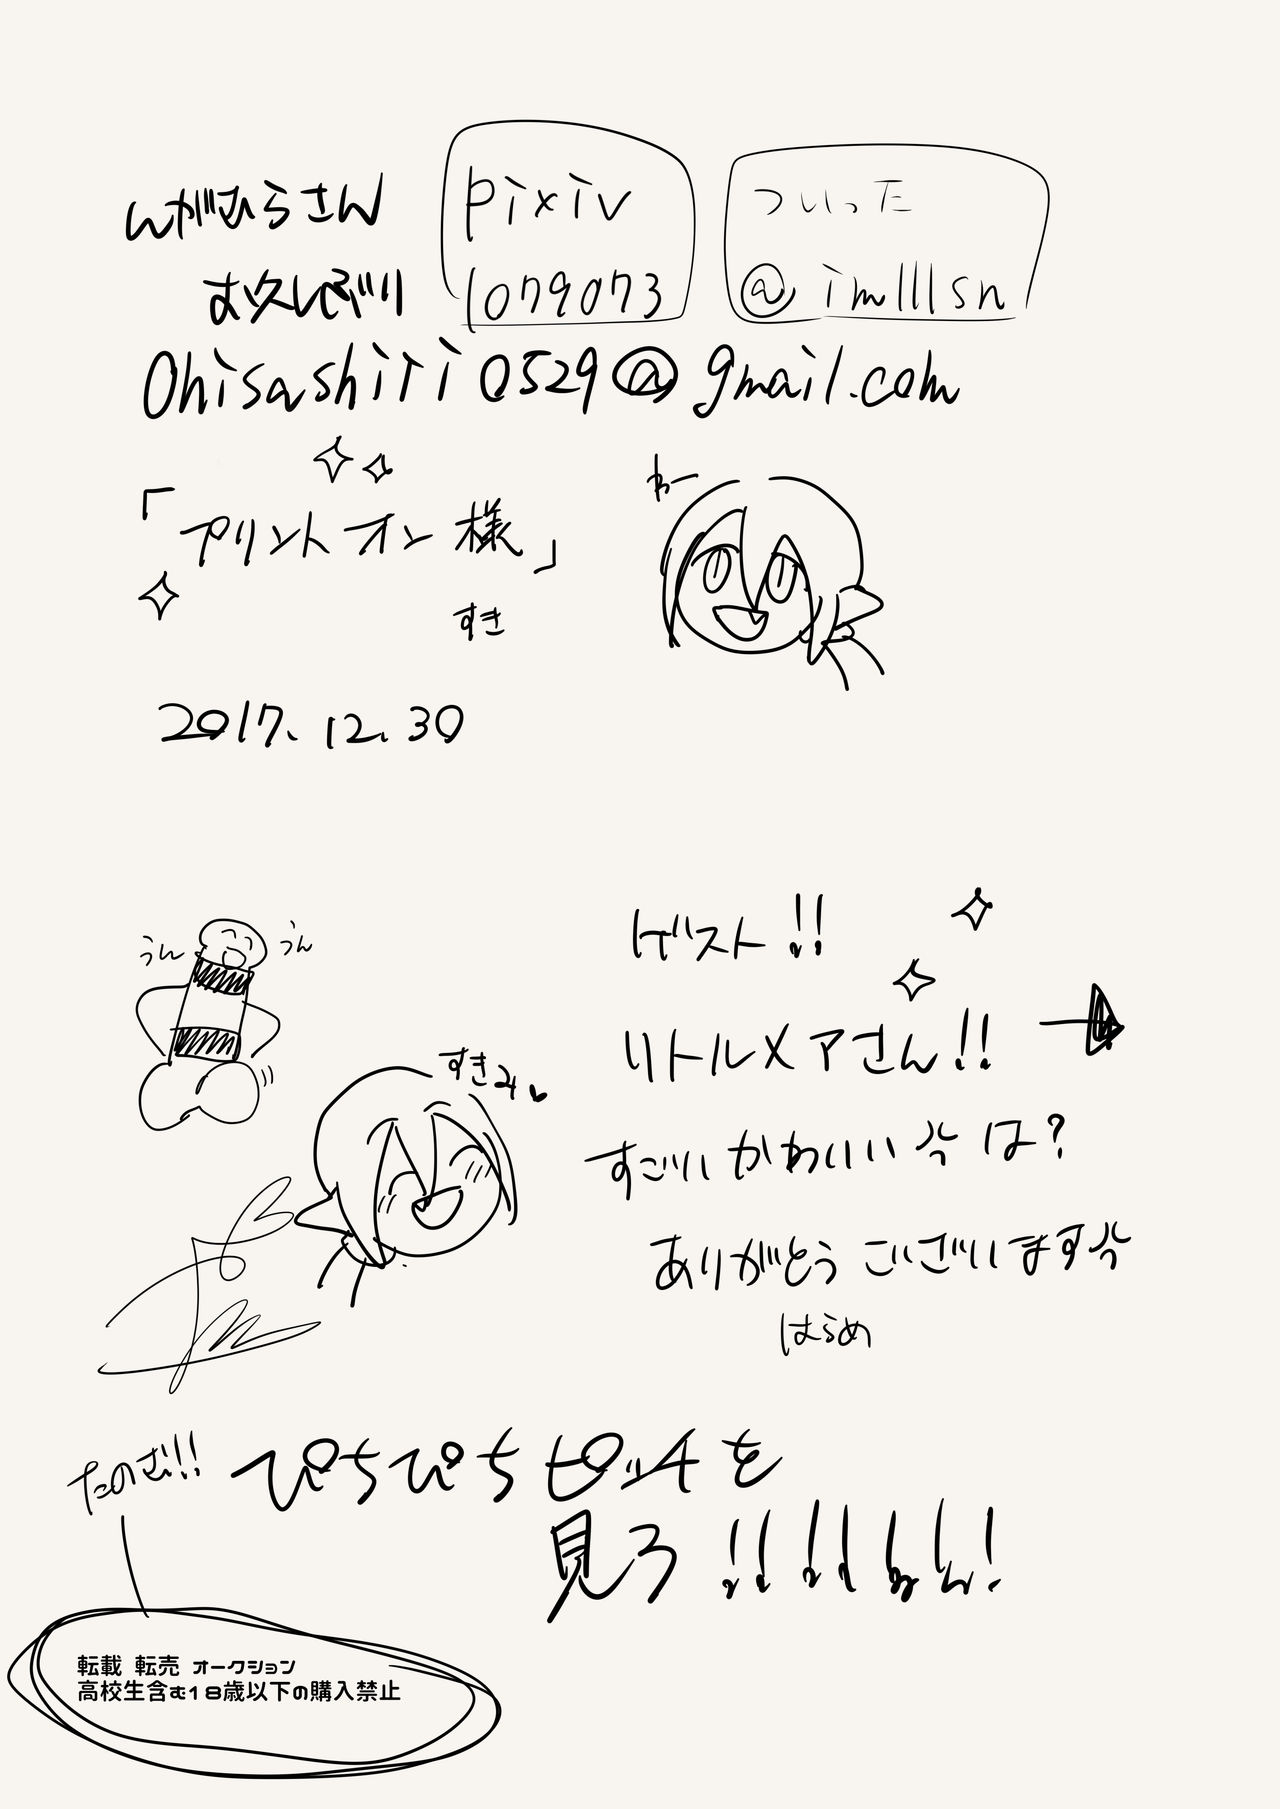 んがひらさん
お久しぶり
pixiv
1079073
ついった
@imlllsn
Ohisashiri0529@gmail.com
わー
「プリントオン様」
すき
2017.12.30
ゲスト!!
うん
うん
リトルメアさん!!
すきみ
すごいかわいい は?
ありがとうございます
はらめ
たのむ!!
ぴちぴちピッチを
見ろ!!!!
転載 転売 オークション
高校生含む18歳以下の購入禁止